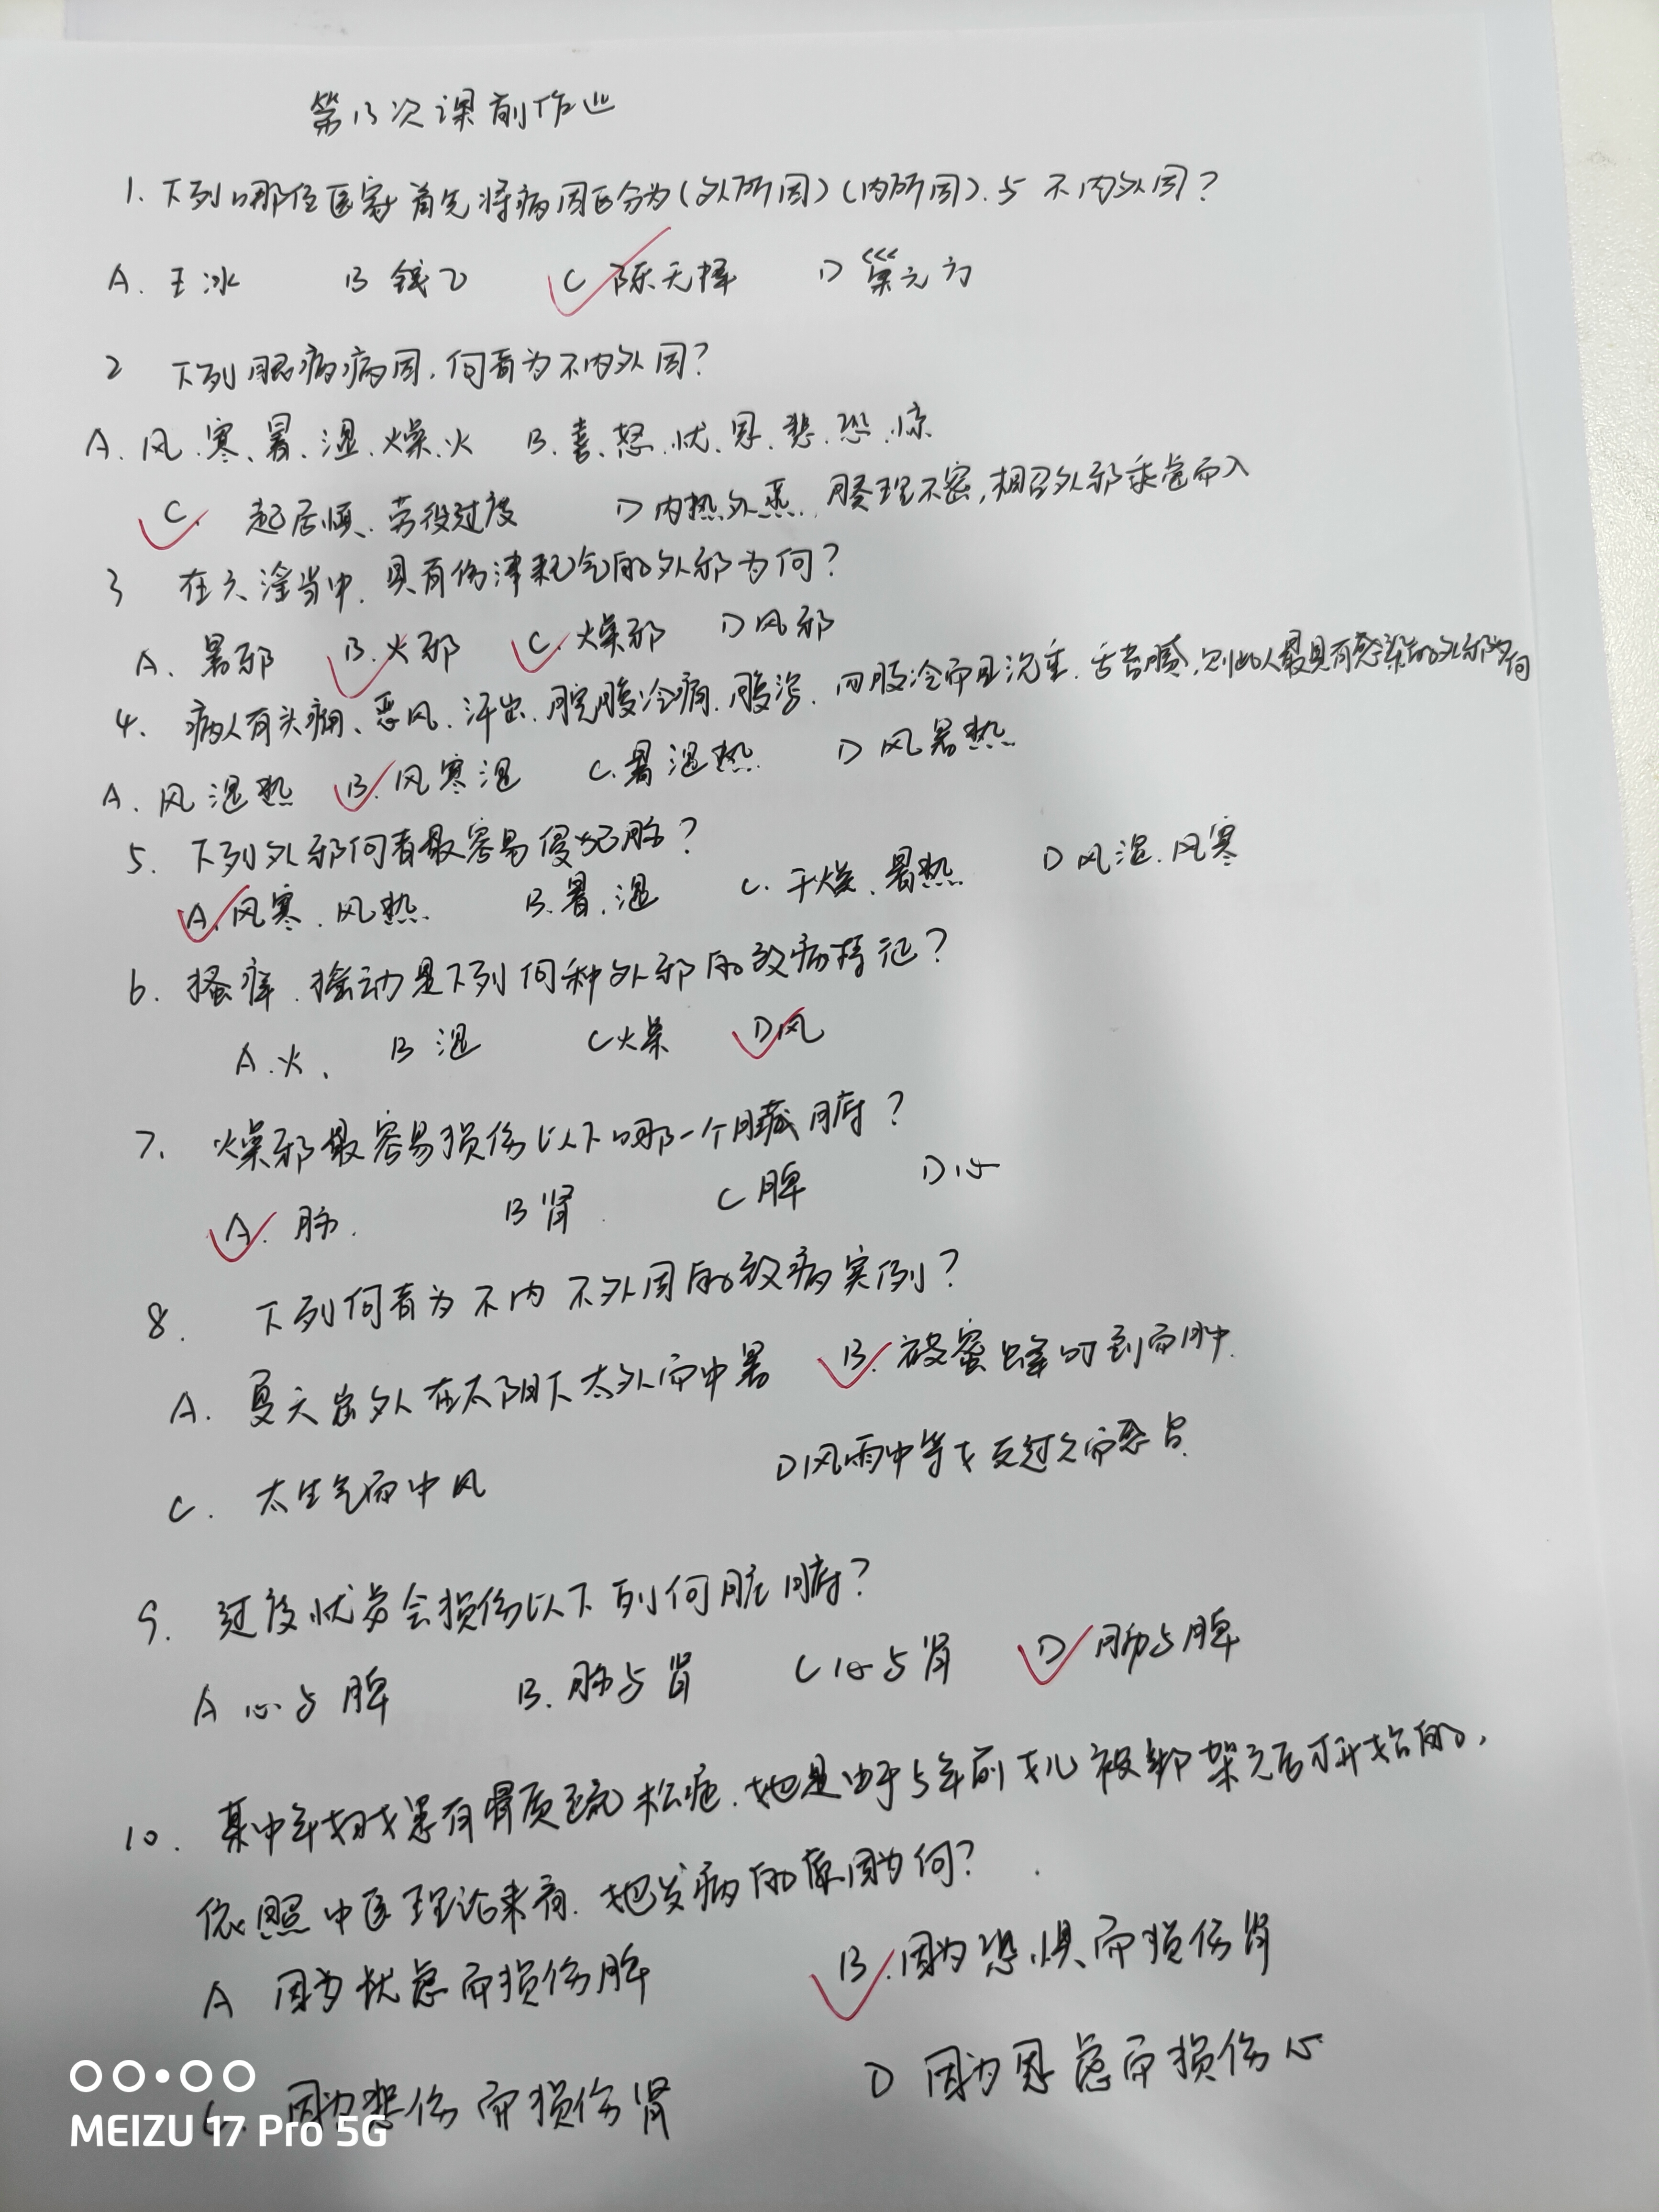 第13次课前作业
1. 下列哪位医家首先将病因区分为(外所因)(内所因).与不内外因?
A. 王冰 B 钱乙 C 陈无择 D 巢元方
2 下列眼病病因,何者为不内外因?
A. 风、寒、暑、湿、燥、火 B. 喜、怒、忧、思、悲、恐、惊
C. 起居慎、劳役过度 D 内热外蒸,腠理不密,相召外邪乘虚而入
3 在六淫当中,具有伤津耗气的外邪为何?
A. 暑邪 B. 火邪 C. 燥邪 D 风邪
4、病人有头痛、恶风、汗出、脘腹冷痛、腹泻、四肢冷而且沉重、舌苔腻,则此人最具有感染的外邪为何
A. 风湿热 B. 风寒湿 C. 暑湿热 D 风暑热
5. 下列外邪何者最容易侵犯肺?
A. 风寒、风热. B. 暑、湿 C. 干燥、暑热 D 风湿、风寒
6. 搔痒、摇动是下列何种外邪的致病特征?
A. 火、 B 湿 C 燥 D 风
7、燥邪最容易损伤以下哪一个脏腑?
A. 肺. B 肾. C 脾 D 心
8. 下列何者为不内不外因的致病实例?
A. 夏天出外在太阳下太久而中暑 B. 被蜜蜂叮到而肿.
C. 太生气而中风 D 风雨中等女友过久而感冒.
9. 过度忧虑会损伤以下列何脏腑?
A 心与脾 B. 肺与肾 C 心与肾 D 肺与脾
10. 某中年妇女患有骨质疏松症.她是由于5年前女儿被绑架之后才开始的,
依照中医理论来看.她发病的原因为何?
A 因为忧虑而损伤脾 B. 因为恐惧而损伤肾
C. 因为悲伤而损伤肾 D 因为思虑而损伤心
MEIZU 17 Pro 5G